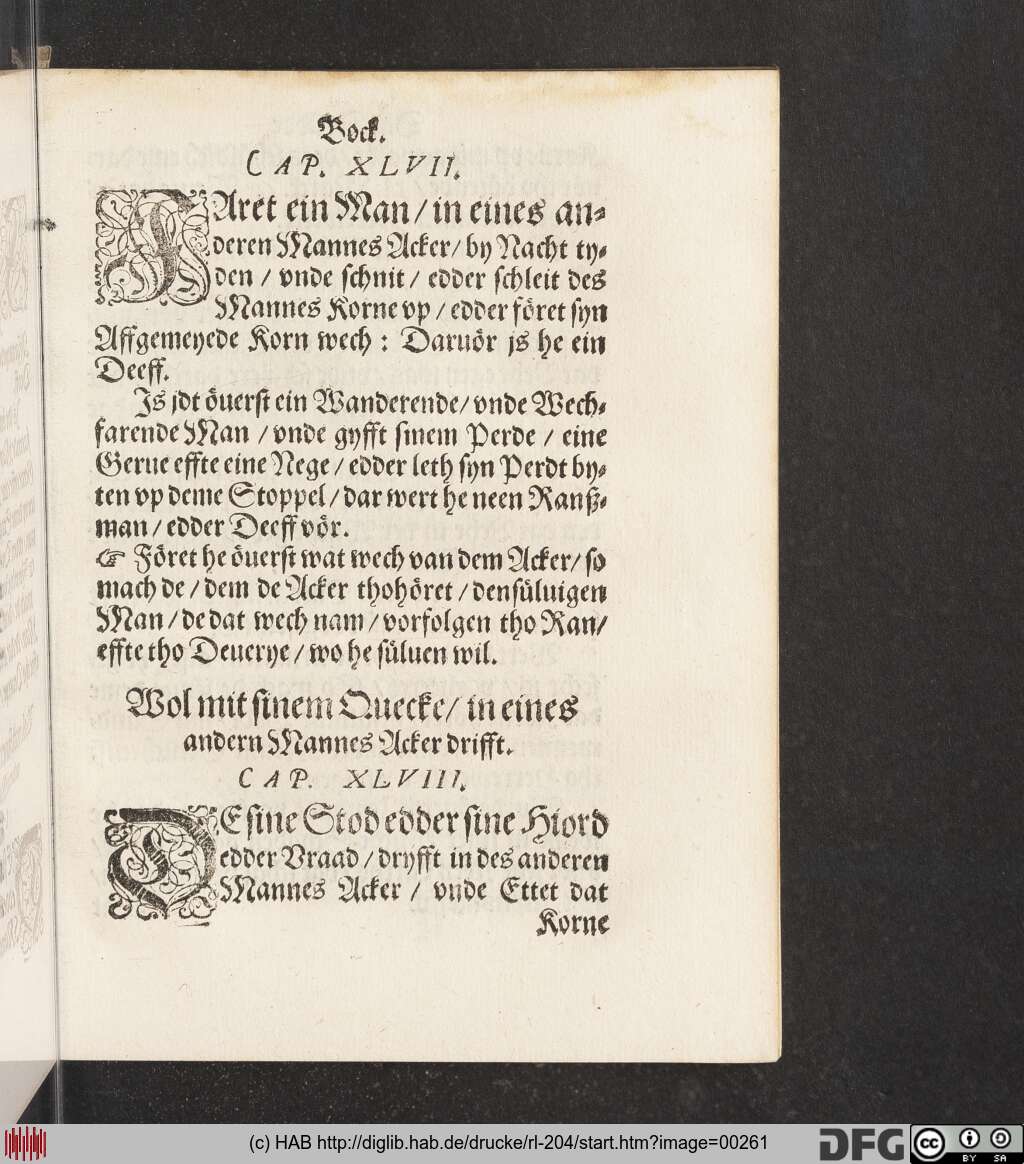 Bock.
CAP. XLVII.
FAret ein Man / in eines an⸗
deren Mannes Acker / by Nacht ty⸗
den / vnde schnit / edder schleit des
Mannes Korne vp / edder föret syn
Affgemeyede Korn wech : Daruör js he ein
Deeff.
Js jdt öuerst ein Wanderende / vnde Wech⸗
farende Man / vnde gyfft sinem Perde / eine
Gerue effte eine Nege / edder leth syn Perdt by⸗
ten vp deme Stoppel / dar wert he neen Ranß⸗
man / edder Deeff vör.
☞ Föret he öuerst wat wech van dem Acker / so
mach de / dem de Acker thohöret / densüluigen
Man / de dat wech nam / vorfolgen tho Ran /
effte tho Deuerye / wo he süluen wil.
Wol mit sinem Quecke / in eines
andern Mannes Acker drifft.
CAP. XLVIII.
DE sine Stod edder sine Hiord
edder Vraad / dryfft in des anderen
Mannes Acker / vnde Ettet dat
Korne
(c) HAB http://diglib.hab.de/drucke/rl-204/start.htm?image=00261
DFG
cc BY SA